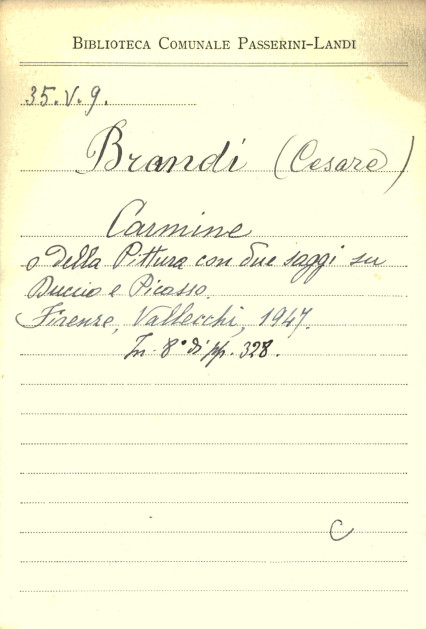 BIBLIOTECA COMUNALE PASSERINI-LANDI
35.V.9.
Brandi (Cesare)
Carmine
o della Pittura con due saggi su
Duccio e Picasso.
Firenze, Vallecchi, 1947.
In 8° di pp. 328.
C